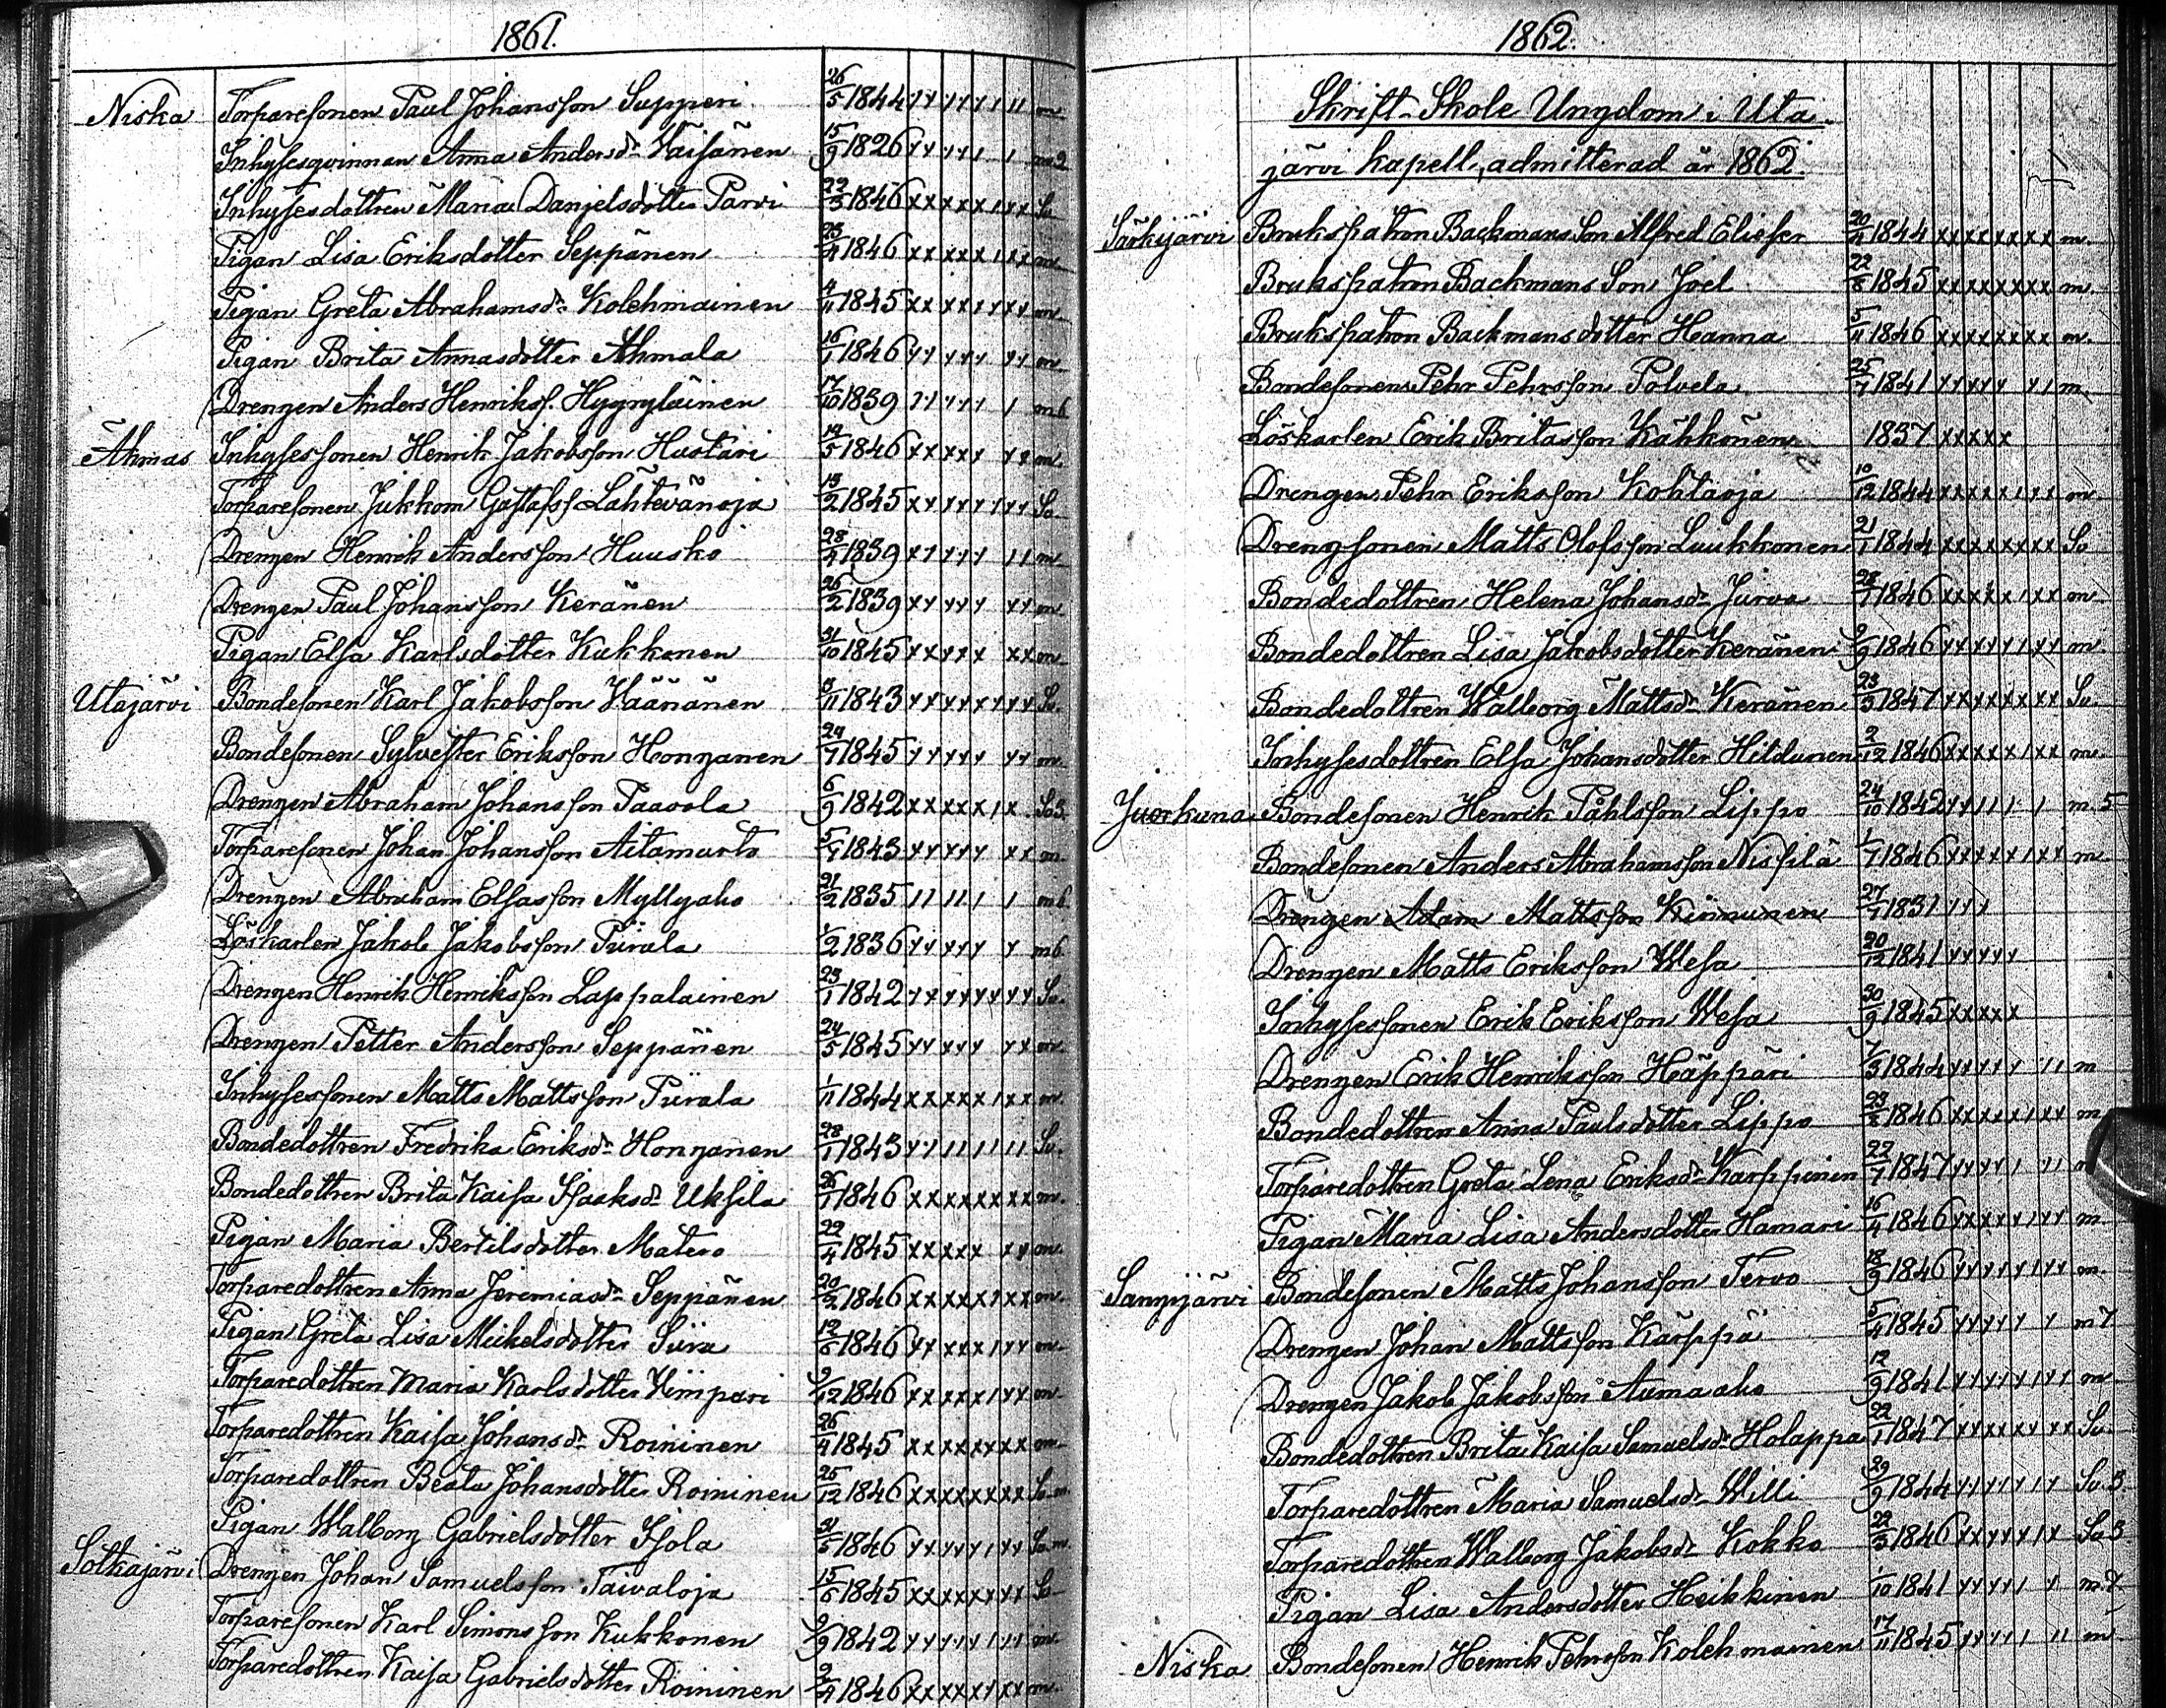 1861.
Niska Torparesonen Paul Johansson Supperi 26/5 1844
Inhysesqvinnan Anna Andersdr Väisänen 15/9 1826 m2
Inhysesdottren Maria Danjelsdotter Parvi 22/3 1846 Sv
Pigan Lisa Eriksdotter Seppänen 1846 m
Pigan Greta Abrahamsdr Kolehmainen 4/11 1845 m
Pigan Brita Annasdotter Ahmala 16/1 1846 m
Drengen Anders Henrikss. Hyyryläinen 17/10 1839 m6
Ahmas Inhysessonen Henrik Jakobsson Hustari 1846 m.
Torparesonen Jukkom Gustafss Lahtevänoja 13/2 1845 Sv
Drengen Henrik Andersson Huusko 1839 m
Drengen Paul Johansson Keränen 26/2 1839 m
Pigan Elsa Karlsdotter Kukkonen 31/10 1845 m
Utajärvi Bondesonen Karl Jakobsson Väänänen 1843 Sv.
Bondesonen Sylvester Eriksson Honganen 1845 m
Drengen Abraham Johansson Paavola 6/9 1842 Sv3.
Torparesonen Johan Johansson Aitamurto 1843 m.
Drengen Abraham Elsasson Myllyaho 21/2 1835 m6
Löskarlen Jakob Jakobsson Piirala 1/2 1836 m6.
Drengen Henrik Henriksson Lappalainen 23/1 1842 Sv.
Drengen Petter Andersson Seppänen 24/5 1845 m.
Inhysessonen Matts Mattsson Piirala 1/11 1844 m
Bondedottren Fredrika Eriksdr Honganen 28/1 1843 Sv.
Bondedottren Brita Kaisa Isaksdr Uksila 26/1 1846 m.
Pigan Maria Bertilsdotter Matero 22/4 1845 m.
Torparedottren Anna Jeremiasdr Seppänen 20/2 1846 m.
Pigan Greta Lisa Mickelsdotter Siira 1846 m
Torparedottren Maria Karlsdotter Kimpari 9/12 1846 m
Torparedottren Kaisa Johansdr Roininen 26/4 1845 m
Torparedottren Beata Johansdotter Roininen 25/12 1846 Sv m
Pigan Walborg Gabrielsdotter Isola 1846 Sv m
Sotkajärvi Drengen Johan Samuelsson Taivaloja 1845 Sv
Torparesonen Karl Simonsson Kukkonen 9/9 1842 m.
Torparedottren Kaisa Gabrielsdotter Roininen 1846 m.
1862.
Skrift-Skole Ungdom i Uta-
järvi kapell, admitterad år 1862.
Särkijärvi Brukspatron Backmans Son Alfred Elieser 20/4 1844 m.
Brukspatron Backmans Son Joel 22/8 1845 m.
Brukspatron Backmans dotter Hanna 5/11 1846 m.
Bondesonen Pehr Pehrsson Polvela 25/7 1841 m
Löskarlen Erik Britasson Kähkönen 1837
Drengen Pehr Eriksson Kohtaoja 10/12 1844 m
Drengsonen Matts Olofsson Luukkonen 21/1 1844 Sv
Bondedottren Helena Johansdr Jurva 1846 m
Bondedottren Lisa Jakobsdotter Keränen 9/9 1846 m.
Bondedottren Walborg Mattsdr Keränen 23/3 1847 Sv.
Inhysesdottren Elsa Johansdotter Hildunen 2/12 1846 m.
Juorkuna Bondesonen Henrik Påhlsson Lippo 24/10 1842 m. 5
Bondesonen Anders Abrahamsson Nispilä 1/7 1846 m
Drengen Adam Mattsson Kinnunen 27/7 1831
Drengen Matts Eriksson Wesa 20/12 1841
Inhysessonen Erik Eriksson Wesa 30/9 1845
Drengen Erik Henriksson Häppäri 7/3 1844 m
Bondedottren Anna Paulsdotter Lippo 23/8 1846 m
Torparedottren Greta Lena Eriksdr Karppinen 22/7 1847
Pigan Maria Lisa Andersdotter Hamari 16/4 1846 m
Sangijärvi Bondesonen Matts Johansson Tervo 18/9 1846 m.
Drengen Johan Mattsson Kärppä 5/4 1845 m 7
Drengen Jakob Jakobsson Aumaaho 12/9 1841 m
Bondedottren Brita Kaisa Samuelsdr Holappa 22/1 1847 Sv.
Torparedottren Maria Samuelsdr Willi 29/9 1844 Sv. 3.
Torparedottren Walborg Jakobsdr Kokko 22/3 1846 Sv 3
Pigan Lisa Andersdotter Heikkinen 1/10 1841 m. 7.
Niska Bondesonen Henrik Pehrsson Kolehmainen 17/11 1845 m